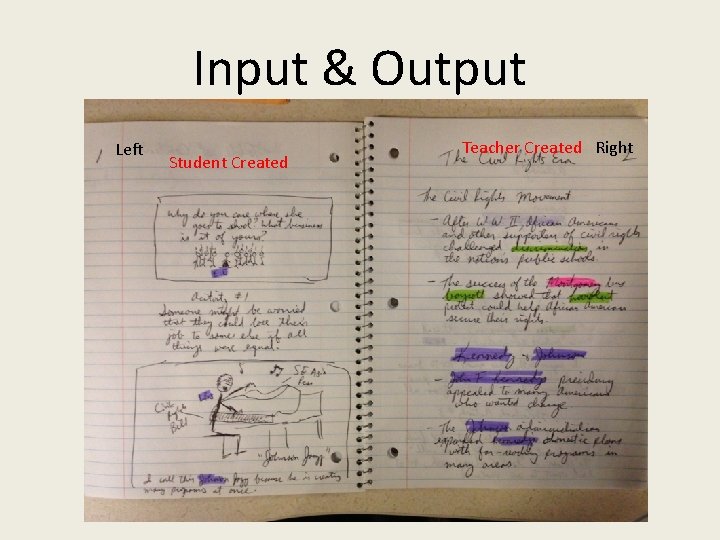 Input & Output
Left
Student Created
Teacher Created Right
1
The Civil Rights Era 2
Why do you care where she
goes to shool? What buisness
is it of yours?
Activity #1
Someone might be worried
that they could lose their
job to some else if all
things were equal.
Civil
Rights
Bill
"Johnson Jazz"
I call this Johnson Jazz because he is creating
many programs at once.
The Civil Rights Movement
- After WW II, African Americans
and other supporters of civil rights
challenged discrimination in
the nation's public schools.
- The success of the Montgomery bus
boycott showed that
protest could help African Americans
secure their rights.
Kennedy & Johnson
- John F. Kennedy's presidency
appealed to many Americans
who wanted change.
- The Johnson administration
expanded Kennedy's domestic plans
with far-reaching programs in
many areas.